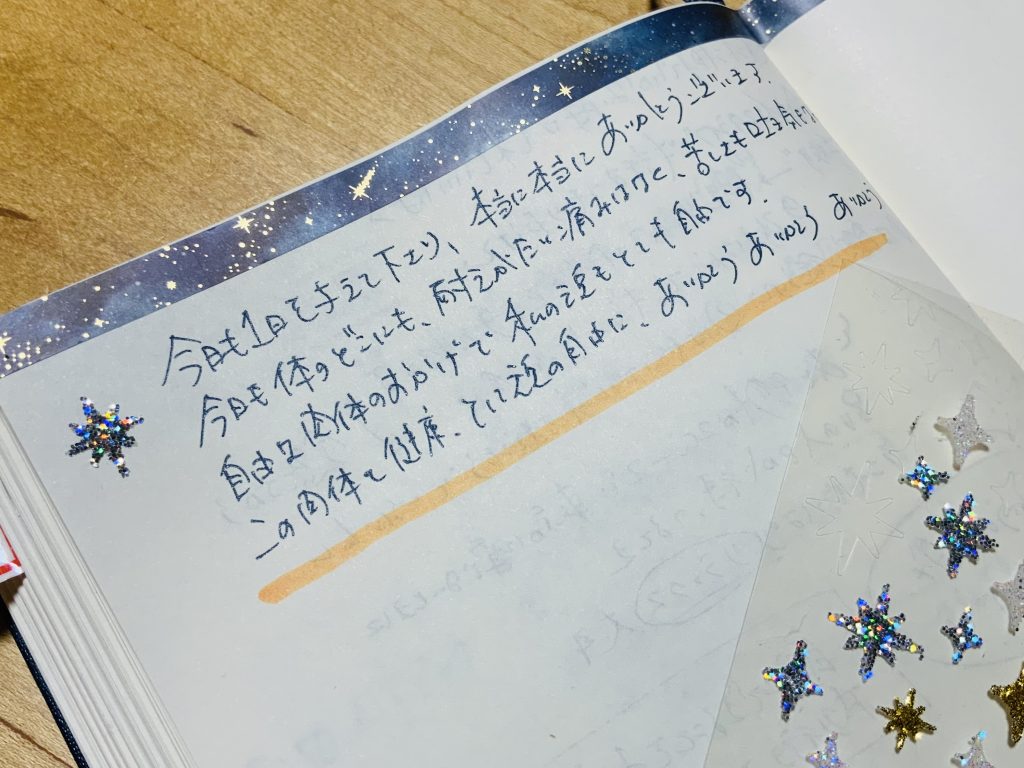 今日も1日を与えて下さり、本当に本当にありがとう ございます.
今日も体のどこにも、耐えがたい痛みはなく、苦しくも
自由な肉体のおかげで私の魂もとても自由です.
この肉体と健康、という魂の自由に、ありがとう ありがとう ありがとう